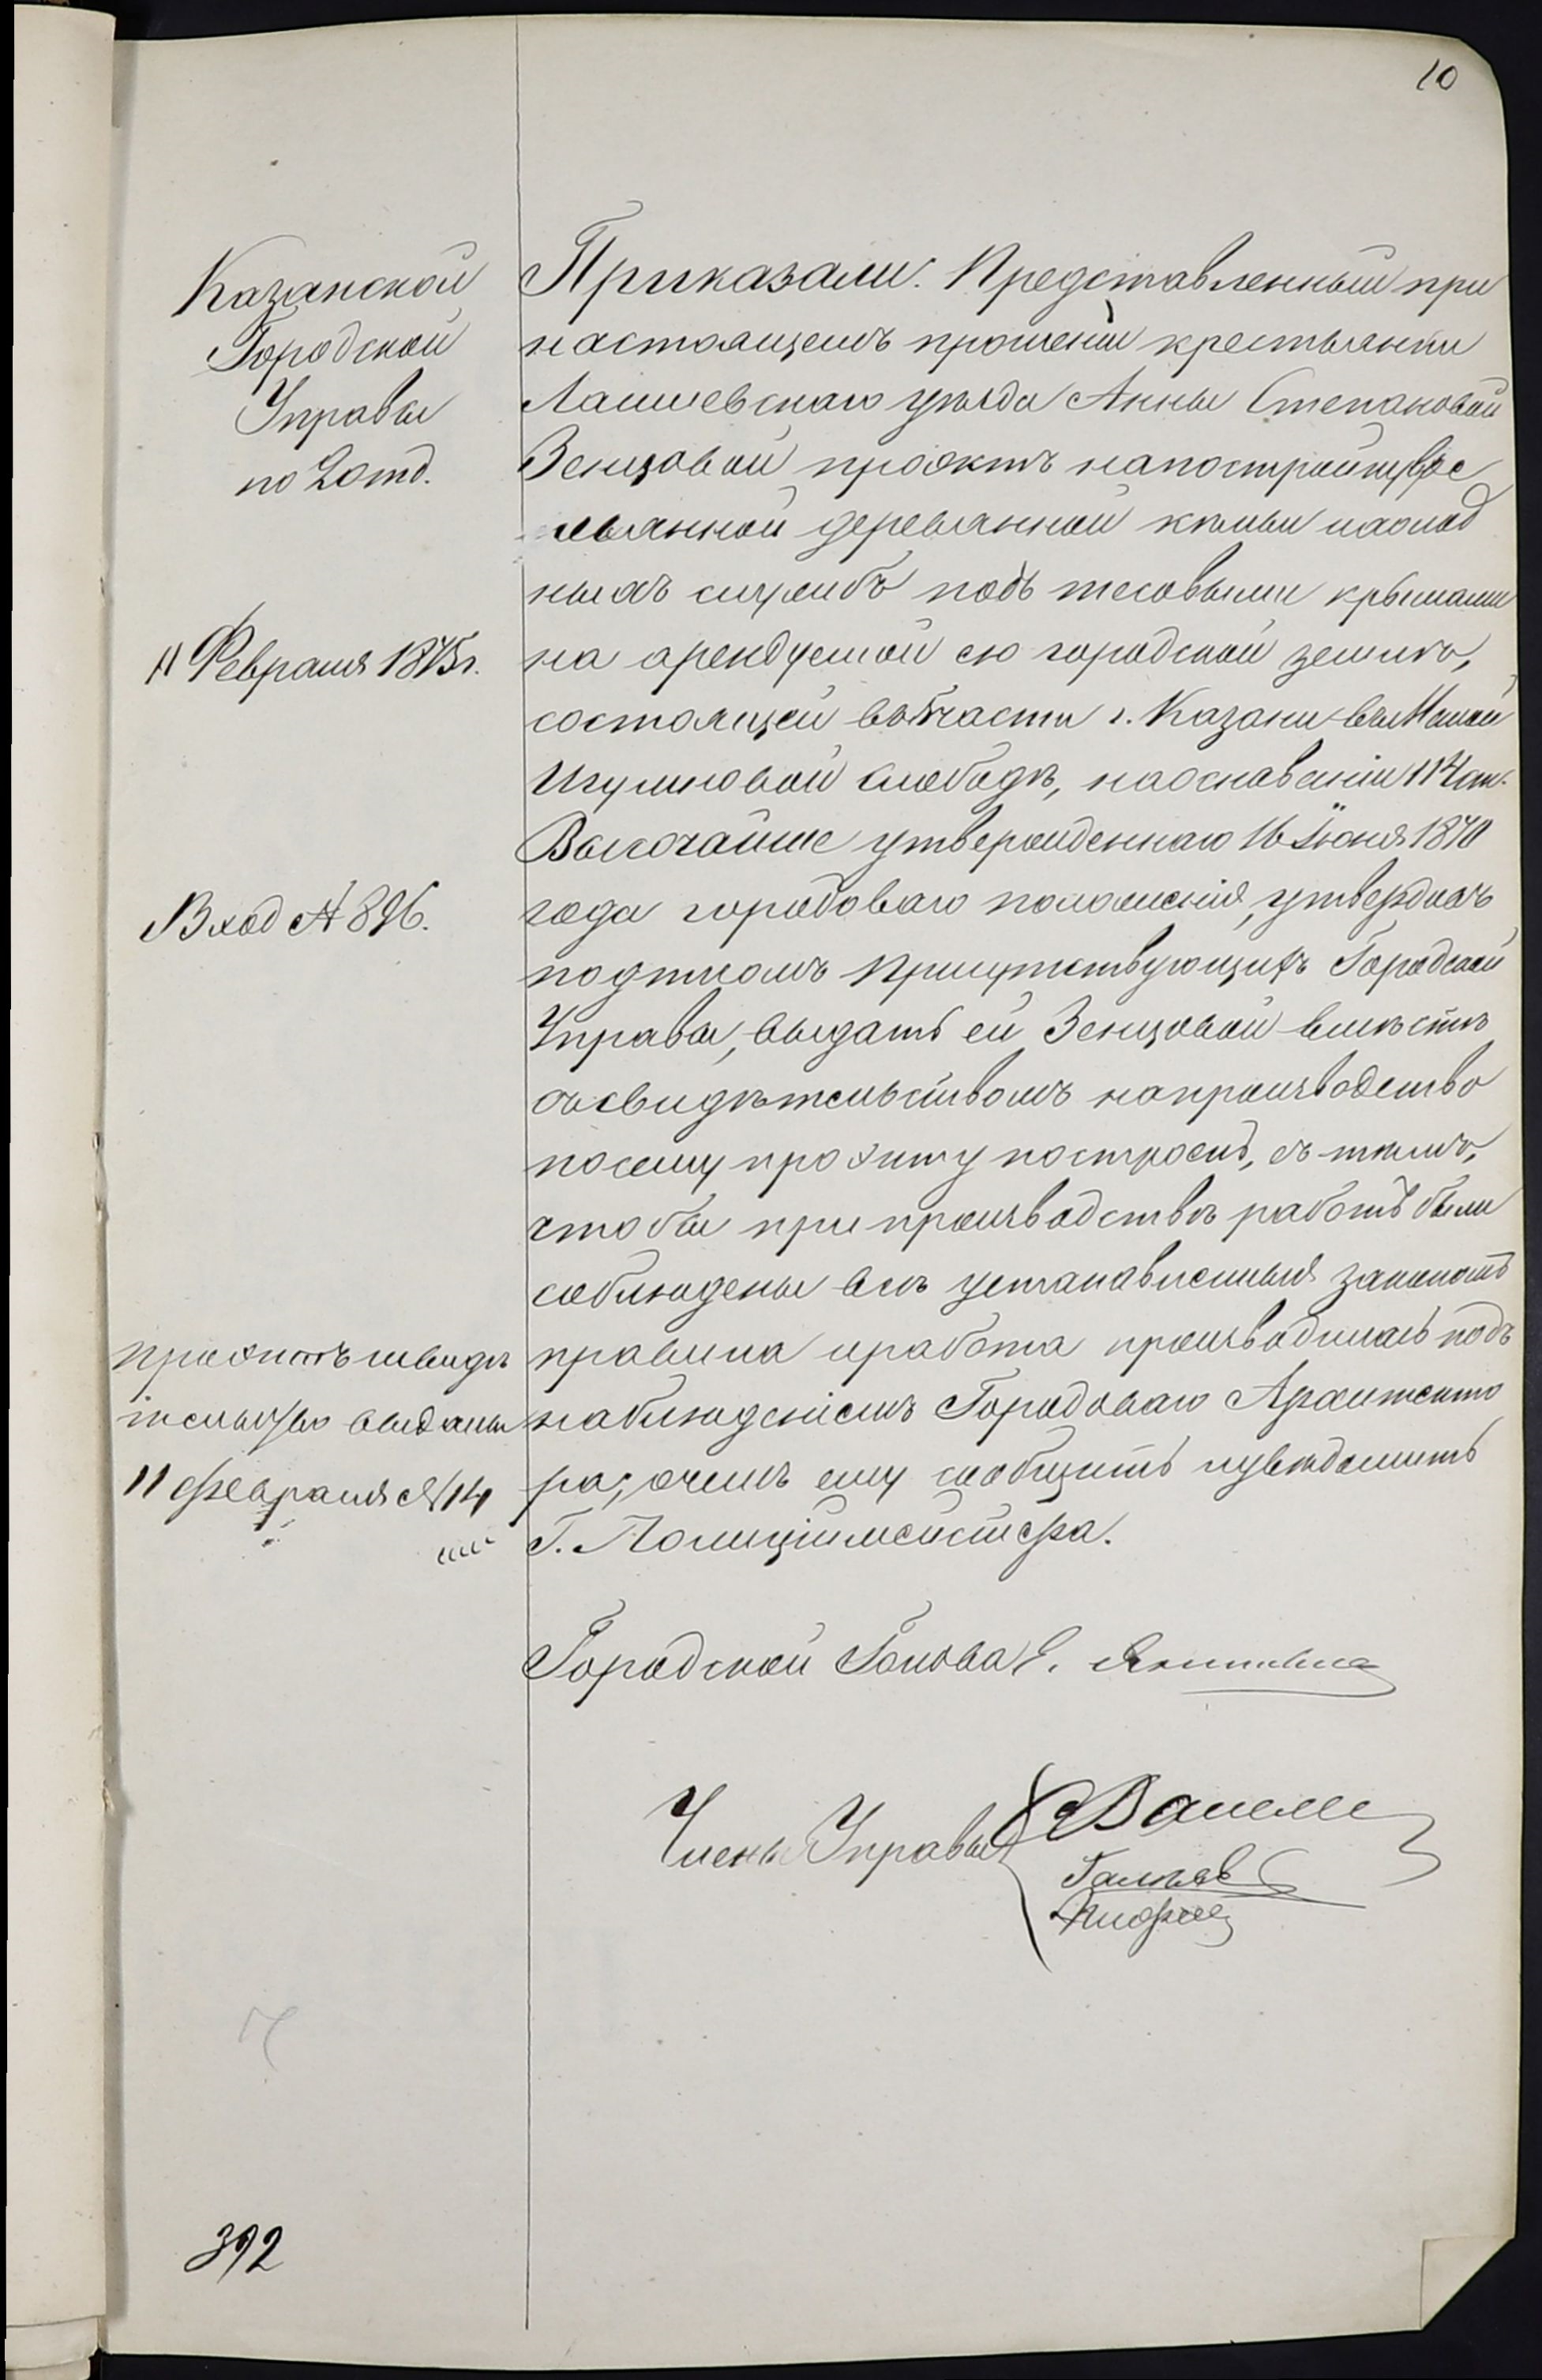 10
Казанской
Городской
Управы
по 2 отд.
11 Февраля 1875 г.
Вход № 896.
Проэктъ и свидѣ
тельство выданы
11 февраля № 14
392
Приказали: Представленный при
настоящемъ прошеніи крестьянки
Лаишевскаго уѣзда Анны Степановой
Зенцовой проэктъ на постройку
деревянной кельи и холод
ныхъ службъ подъ тесовыми крышами
на арендуемой ею городской землѣ,
состоящей въ части г. Казани въ Малой
Игумновой слободѣ, на основаніи 114 ст.
Высочайше утвержденнаго 16 Іюня 1870
года городоваго положенія, утвердивъ
подписомъ Присутствующихъ Городской
Управы, выдать ей Зенцовой вмѣстѣ
съ свидѣтельствомъ на производство
по сему проэкту построекъ, съ тѣмъ,
чтобы при производствѣ работъ были
соблюдены всѣ установленныя закономъ
правила и работа производилась подъ
наблюденіемъ Городоваго Архитекто
ра; о чемъ ему сообщить и увѣдомить
Г. Полиціймейстера.
Городской Голова Э. Янишевскій
Члены Управы